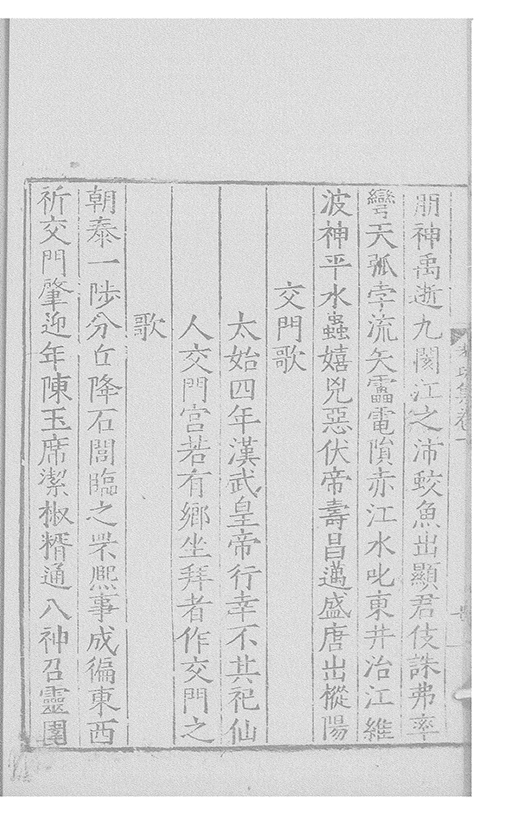 朋神禹逝九闕江之沛蛟魚出顯君伎誅弗率
彎天弧孛流矢靁電隕赤江水叱東井冶江維
波神平水蟲嬉兇惡伏帝壽昌邁盛唐出樅陽
交門歌
太始四年漢武皇帝行幸不其祀仙
人交門宫若有鄉坐拜者作交門之
歌
朝泰一陟分丘降石閭臨之罘熙事成徧東西
祈交門肇迎年陳玉席潔椒糈通八神召靈圉